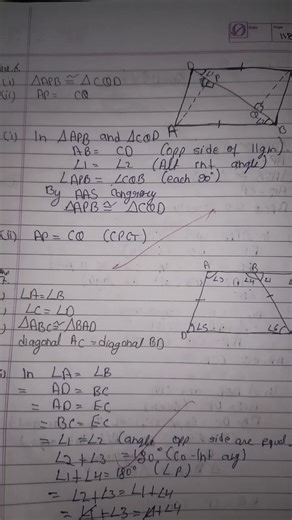 (i) △APB ≅ △CQD
(ii) AP = CQ
D
P
A
B
(i) In △APB and △CQD
AB = CD (opp side of llgm)
∠1 = ∠2 (Alt int angle)
∠APB = ∠CQB (each 90°)
By AAS congruency
△APB ≅ △CQD
(ii) AP = CQ (CPCT)
A B
∠3 ∠4
D ∠5 ∠6
∠A = ∠B
∠C = ∠D
△ABC ≅ △BAD
diagonal AC = diagonal BD
) In ∠A = ∠B
= AD = BC
= AD = EC
= BC = EC
= ∠1 = ∠2 (angle opp side are equal
∠2 + ∠3 = 180° (Co-Int ang)
∠1 + ∠4 = 180° (LP)
= ∠2 + ∠3 = ∠1 + ∠4
= ∠1 + ∠3 = ∠1 + ∠4